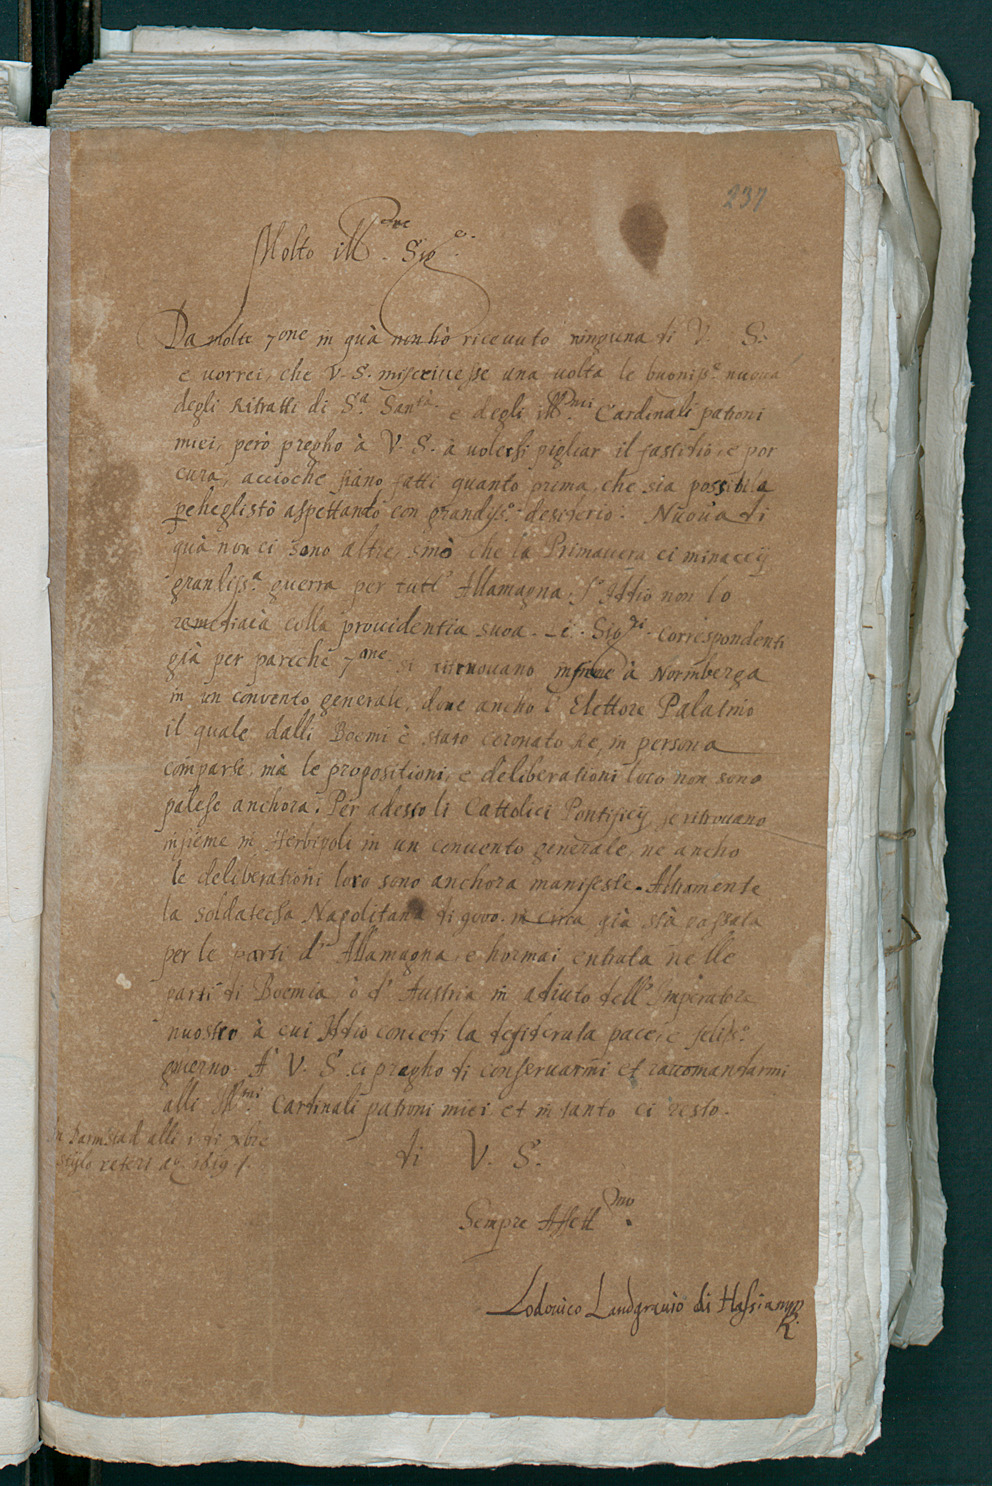 237
Molto Ill.re Sig.e
Da molte 7one in quà non hò riceuuto ninguna di V. S.
e uorrei, che V. S. mi scriuesse una uolta le buoniss.e nuoua
degli Ritratti di S.a San.tà e degli Ill.mi Cardinali patroni
miei, però pregho à V. S. à uolersi pigliar il fastidio, e por
cura, accioche siano fatti quanto prima, che sia possibila
peheglistò aspettanto con grandiss.o desiderio. Nuoua di
quà non ci sono altre, sinò che la Primauera ci minaccij
grandiss.a guerra per tutt' Allamagna, s' Iddio non lo
remediarà colla prouidentia suoa. Li Sig.ri Correspondenti
già per parechè 7one si ritruouano insieme à Normberga
in un conuento generale, doue ancho l' Elettore Palatino
il quale dalli Boemi è stato coronato Re, in persona
comparse, mà le propositioni, e deliberationi loro non sono
palese anchora. Per adesso li Cattolici Pontificij se ritrouano
insieme in Herbipoli in un conuento generale, ne ancho
le deliberationi loro sono anchora manifeste. Altramente
la soldatesca Napolitana di 9000. in circa già stà passata
per le parti d' Allamagna, e hormai entrata nelle
parti di Boemia, ò d' Austria in adiuto dell' Imperatore
nuostro à cui Iddio concedi la desiderata pace, e feliss.o
guerno. A' V. S. ci pregho di conseruarmi et raccomandarmi
alli Ill.mi Cardinali patroni miei et in tanto ci resto.
In Darmstad alli 1 di Xbre
stylo veteri aº. 1619.
di V. S.
Sempre Affett.mo
Lodouico Landgrauio di Hassia